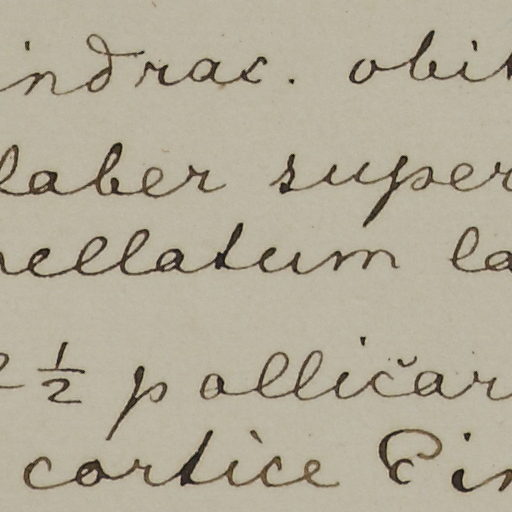 indrac. obit
laber super
ellatum la
2 1/2 pollicar
cortice Pin